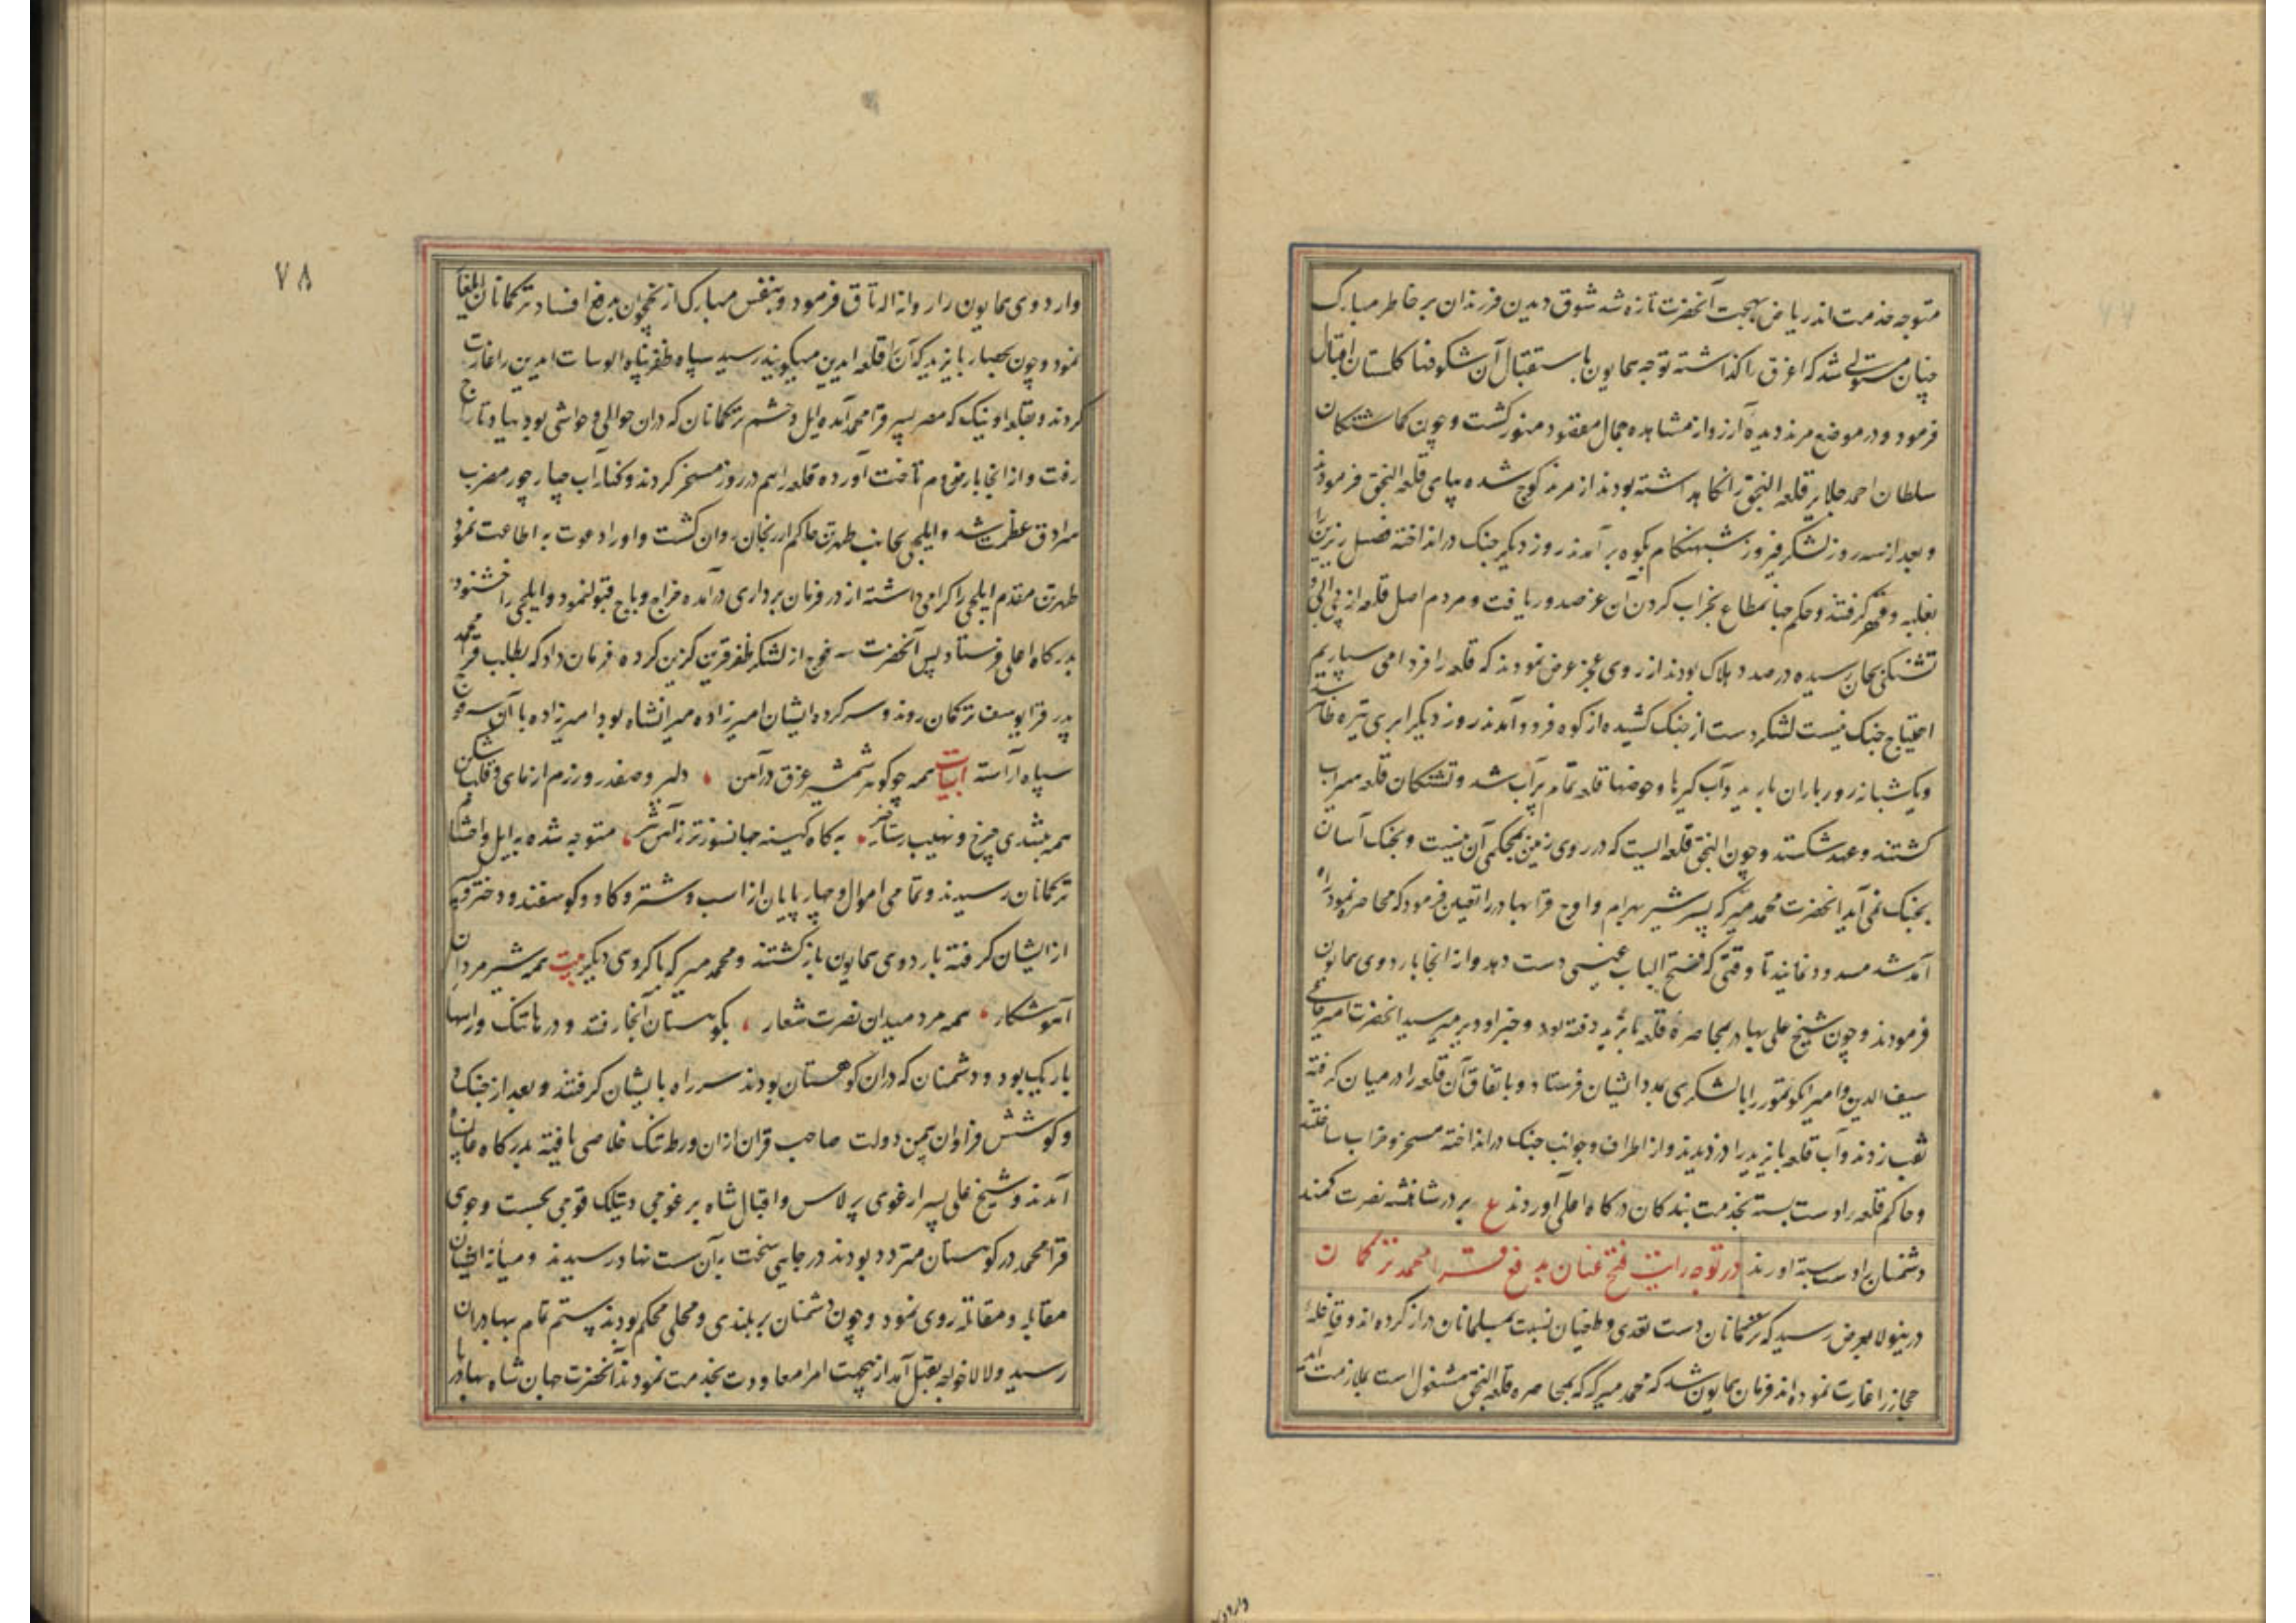 متوجه خدمت اند ریاض بهجت آنحضرت تازه شد شوق دیدن فرزندان بر خاطر مبارک
چنان مستولی شد که اغرق را کذاشته توجه همایون باستقبال آن شکوفها کلستان اقبال
فرمود و در موضع مرند دیده آرزو از مشاهده جمال مقصود منور کشت و چون کماشتکان
سلطان احمد جلایر قلعه النجق را نکاه داشته بودند از مرند کوچ شده بپای قلعه النجق فرمودند
و بعد از سه روز لشکر فیروز شبهنکام بکوه برآمدند روز دیکر جنک در انداخته فصیل زیرین را
بغلبه و قهر کرفتند و حکم جهانمطاع بخراب کردن آن عز صدور یافت و مردم اصل قلعه از بی آبی و
تشنکی بجان رسیده در صدد هلاک بودند از روی عجز عرض نمودند که قلعه را فردا می سپاریم
احتیاج جنک نیست لشکر دست از جنک کشیده از کوه فرود آمدند روز دیکر ابری تیره ظاهر شد
و یکشبانه روز باران بارید و آب کیرها و حوضها قلعه تمام پر آب شد و تشنکان قلعه سیراب
کشتند و عهد شکستند و چون النجق قلعه ایست که در روی زمین بمحکمی آن نیست و بجنک آسان
بجنک نمی آید آنحضرت محمد میرکه پسر شیر بهرام و اوج قرا بهادر را تعیین فرمود که محاصره نموده راه
آمد شد مسدود نمایند تا وقتی که فتح الباب غیبی دست دهد و از انجا باردوی همایون
فرمودند و چون شیخ علی بهادر بمحاصره قلعه بایزید رفته بود و خبر او دیر میرسید آنحضرت امیر حاجی
سیف الدین و امیر ایکو تمور را با لشکری بمدد ایشان فرستاد و باتفاق آن قلعه را در میان کرفته
نقب زدند و آب قلعه بایزید را دزدیدند و از اطراف و جوانب جنک در انداخته مسخر و خراب ساختند
و حاکم قلعه را دست بسته بخدمت بندکان درکاه اعلی آوردند ع بر در شاهنشه نصرت کمند
دشمنان را دست بسته اورند در توجه رایت فتح عنان بدفع قرا محمد ترکمان
درینولا بعرض رسید که ترکمانان دست تعدی و طغیان نسبت بمسلمانان دراز کرده اند و قافله
حجاز را غارت نموده اند فرمان همایون شد که محمد میرکه که بمحاصره قلعه النجق مشغول است بملازمت آمد
واردو
٧٨
و اردوی همایون را روانه الاتاق فرمود و بنفس مبارک از نخجوان بدفع افساد ترکمانان ایلغار
نمود و چون بحصار بایزید که آن را قلعه ایدین میکویند رسید سپاه ظفرپناه الوسات ایدین را غارت
کردند و بقلعه اونیک که مصر پسر قرا محمد آمده ایل و حشم ترکمانان که دران حوالی و حواشی بود بباد تاراج
رفت و از انجا بارض روم تاخت آورده قلعه را هم در روز مسخر کردند و کنار آب چپارچور مضرب
سرادق عظمت شد و ایلچی بجانب طهرتن حاکم ارزنجان روان کشت و او را دعوت به اطاعت نمود
طهرتن مقدم ایلچی را کرامی داشته از در فرمان برداری درآمده خراج و باج قبول نمود و ایلچی را خشنود
بدرکاه اعلی فرستاد پس آنحضرت سه فوج از لشکر ظفرقرین کزین کرده فرمان داد که بطلب قرا محمد
پدر قرا یوسف ترکمان روند و سرکرده ایشان امیرزاده میرانشاه بود امیرزاده با آن سه فوج
سپاه آراسته ابیات همه چو کوهر شمشیر غرق در آهن دلیر و صفدر و رزم ازمای و قلب شکن
همه بتندی چرخ و نهیب رستاخیز به کاه کینه جهانسوزتر ز آتش تیز متوجه شده به ایل و احشام
ترکمانان رسیدند و تمامی اموال و چهارپایان از اسب و شتر و کاو و کوسفند و دختر و
از ایشان کرفته باردوی همایون باز کشتند و محمد میرکه با کروهی دیکر بیت همه شیر مردان
آهو شکار همه مرد میدان نصرت شعار بکوهستان آنجا رفتند و درهاء تنک و راهها
باریک بود و دشمنان که دران کوهستان بودند سر راه بایشان کرفتند و بعد از جنک و
و کوشش فراوان بیمن دولت صاحب قران ازان ورطه تنک خلاصی یافته بدرکاه جهان پناه
آمدند و شیخ علی پسر ارغوی برلاس و اقبال شاه برغوچی و تیلک قوچی بجست وجوی
قرا محمد در کوهستان متردد بودند در جایی سخت برآن ست بهادر رسیدند و میانه ایشان
مقابله و مقاتله روی نمود و چون دشمنان بر بلندی و محلی محکم بودند تمام بهادران
رسید و لالا خواجه بقتل آمد ازینجهت امرا معاودت بخدمت نمودند آنحضرت جهان شاه بهادر با